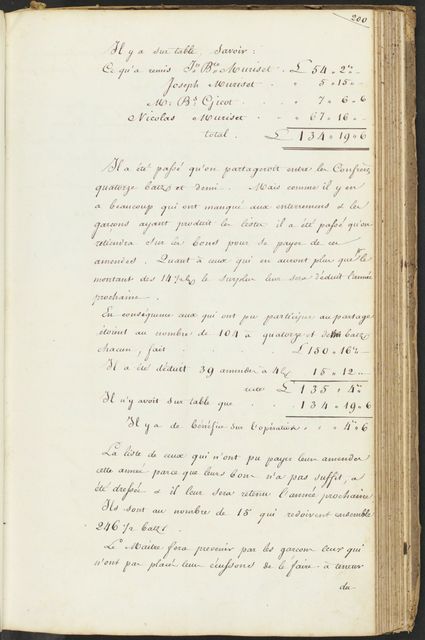 200
Il y a sur table, Savoir:
Ce qu'a remis Jn. Bte. Muriset . £ 54 " 2 "
Joseph Muriset " 5 " 15 "
Mr. Bt. Gicot " 7 " 6 " 6
Nicolas Muriset " 67 " 16 "
total . £ 134 " 19 " 6
Il a été passé qu'on partageroit entre les Confrères
quatorze batz et demi. Mais comme il y en
a beaucoup qui ont manqué aux enterremens & les
garçons ayant produit les listes il a été passé qu'on
retiendra sur les bons pour se payer de ces
amendes. Quant à ceux qui en auront plus que le
montant des 14 1/2 bz le surplus leur sera déduit l'année
prochaine.
En conséquence ceux qui ont pu participer au partage
étoient au nombre de 104 à quatorze et demi batz
chacun, fait £ 150 " 16 "
Il a été déduit 39 amendes à 4 bz 15 " 12 "
reste £ 135 " 4 "
Il n'y avoit sur table que 134 " 19 " 6
Il y a de bénéfice sur l'opération " " 4 " 6
La liste de ceux qui n'ont pu payer leurs amendes
cette année parce que leurs bons n'a pas suffit, a
été dressée & il leur sera retenu l'année prochaine
Ils sont au nombre de 15 qui redoivent ensemble
246 1/2 batz.
Le Maître fera prevenir par les garçons ceux qui
n'ont pas placé leurs écussons de le faire à teneur
du